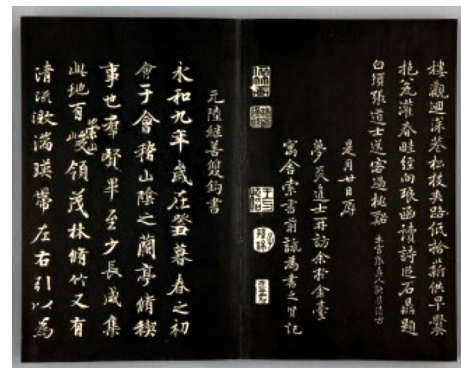 樓觀迴深巷松枝夾路低拾薪供早爨
抱瓮灌春畦徑向琅函讀詩從石鼎題
白須張道士送客過桃谿
是月廿日
道士再訪余於金臺
寓舍索書前詩為書之
元陸繼善雙鈎書
永和九年歲在癸丑暮春之初
會于會稽山陰之蘭亭脩稧
事也群賢畢至少長咸集
此地有崇山峻領茂林脩竹又有
清流激湍暎帶左右引以為